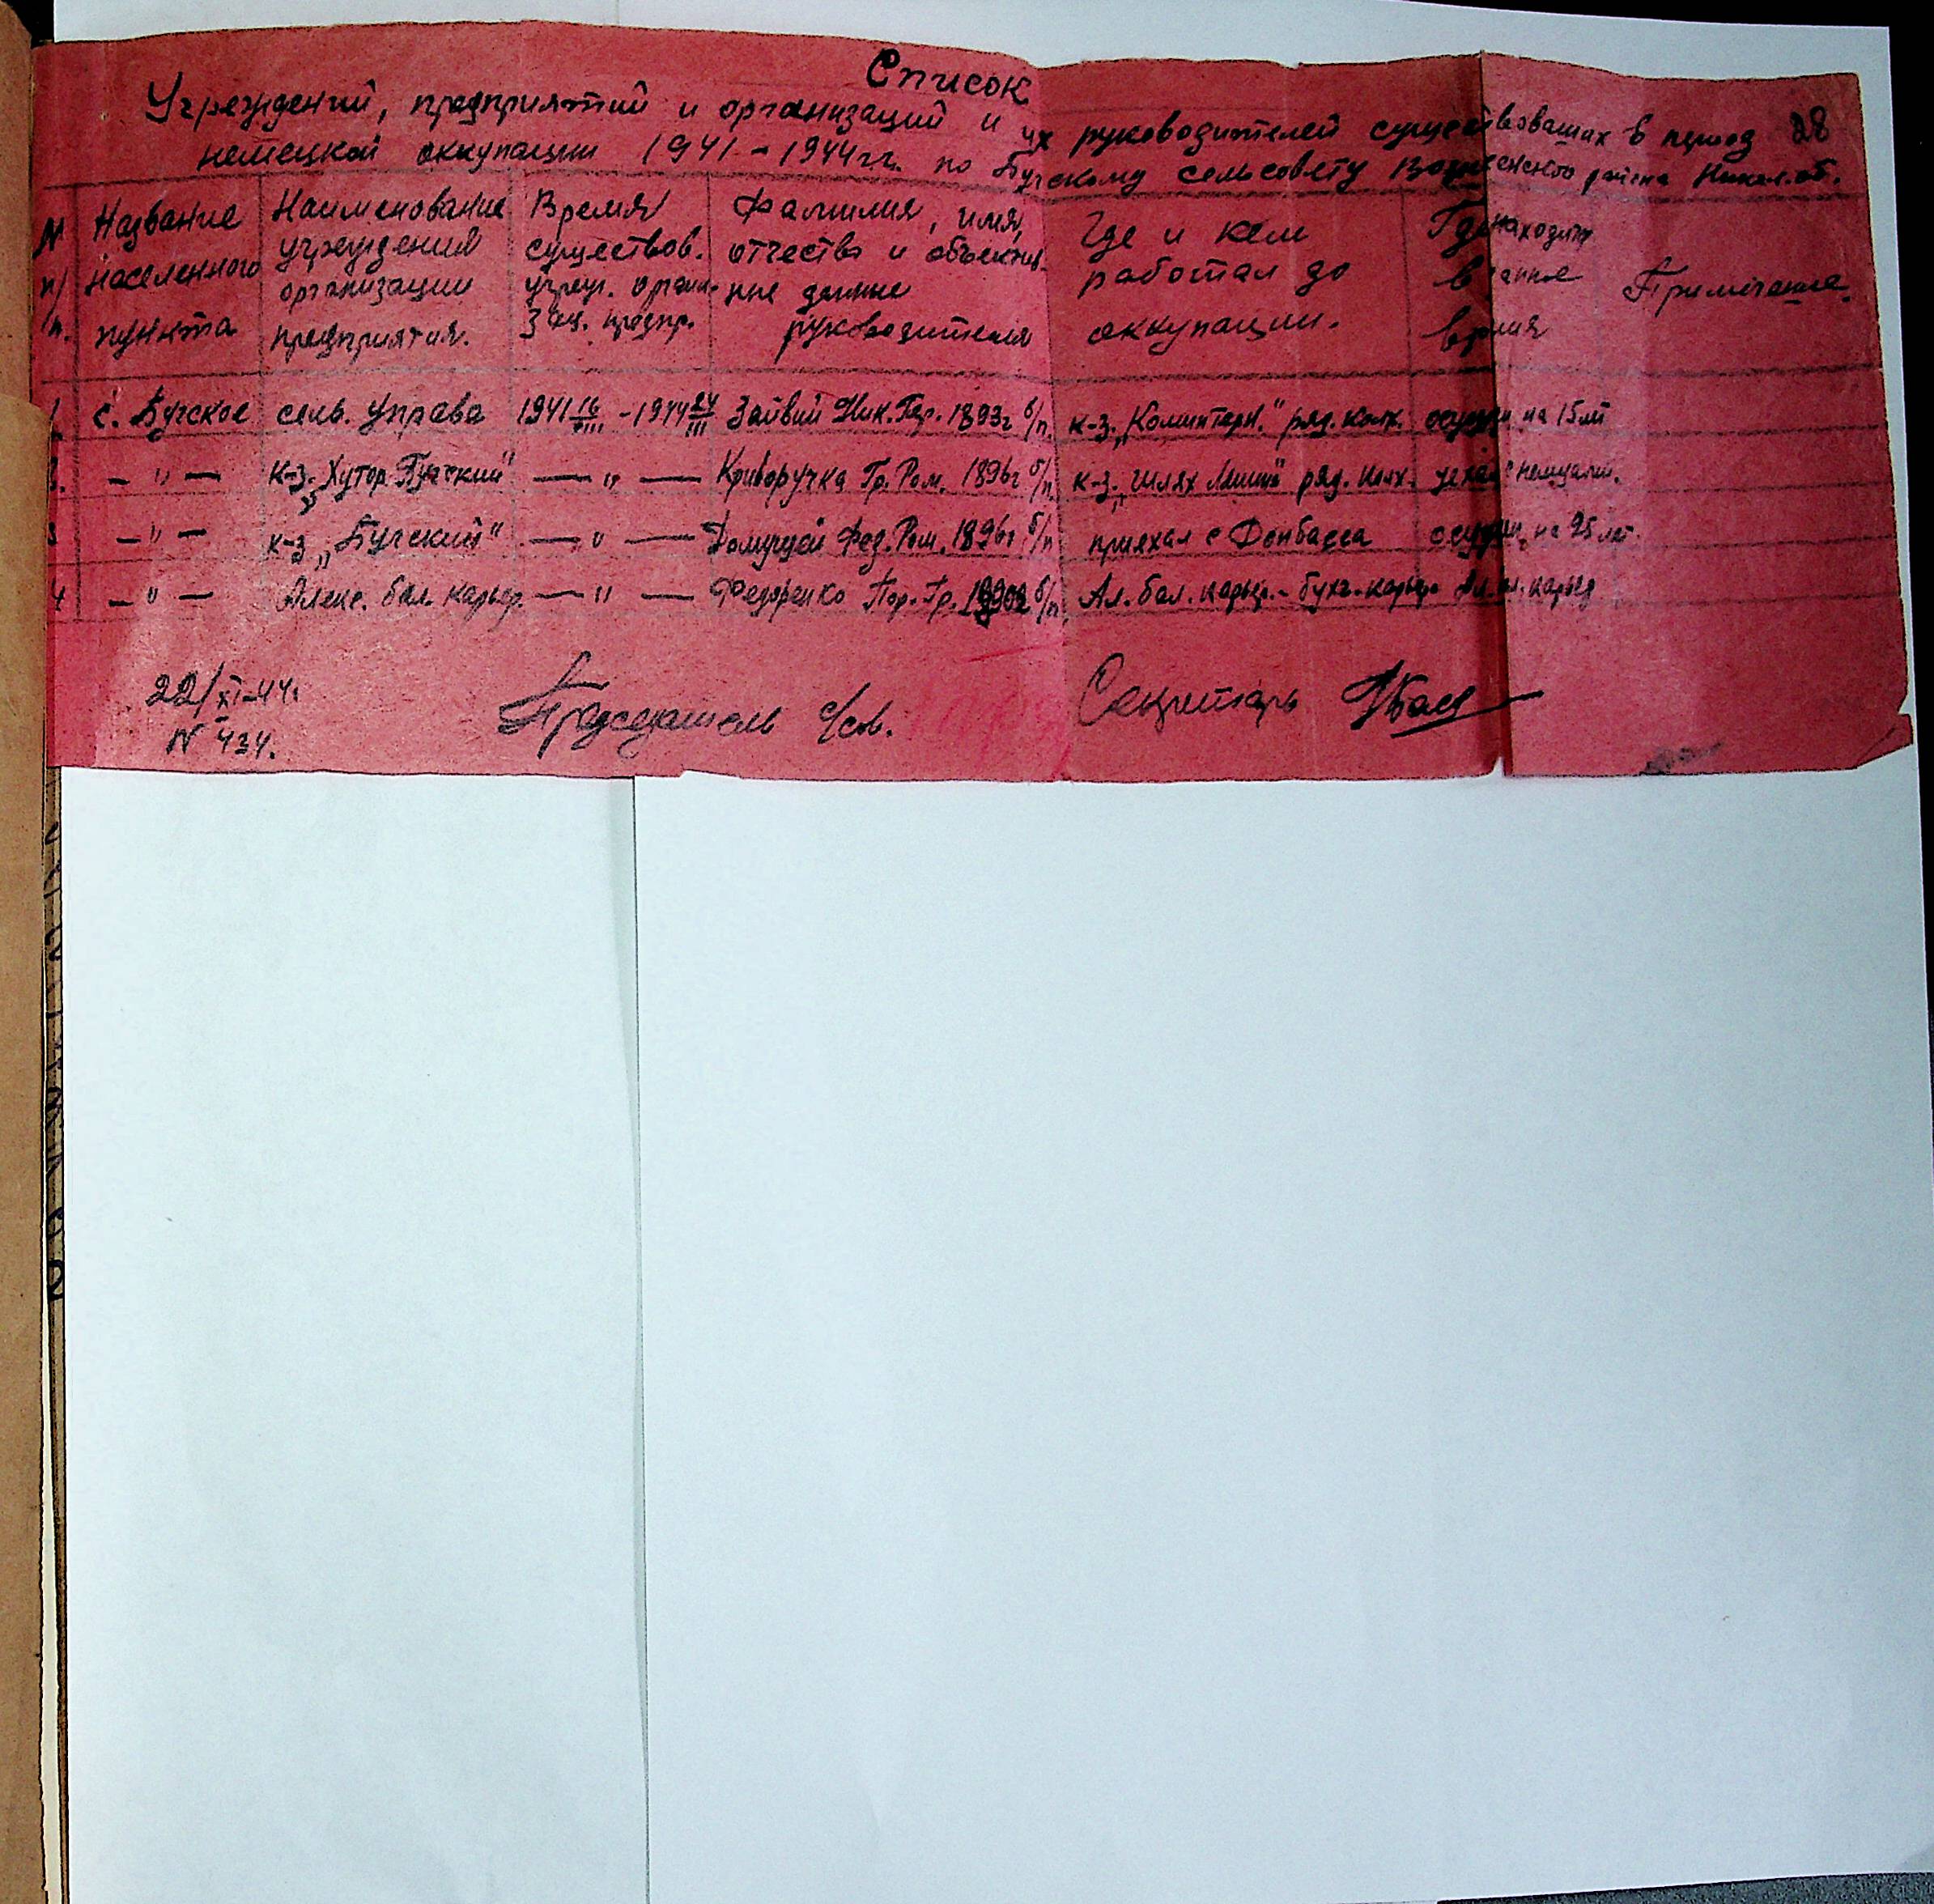 Список
Учреждений, предприятий и организаций и их руководителей существовавших в период 28
немецкой оккупации 1941-1944гг. по Бугскому сельсовету Вознесенского района Никол. об.
N п/п. Название населенного пункта Наименование учреждения организации предприятия. Время существов. учреж. органи- зац. предпр. Фамилия, имя, отчество и объектив- ные данные руководителя Где и кем работал до оккупации. Где находит в данное время Примечание.
1 с. Бугское сель. управа 1941 16/VIII - 1944 24/III Зайвий Ник. 1893г б/п. к-з. „Коминтерн." ряд. колх. осужден на 15 лет
2. - " - к-з. „Хутор. Бугский" — " — Криворучка Гр. Ром. 1896г б/п. к-з. „Шлях Ленина" ряд. колх. уехал с немцами.
3 - " - к-з „Бугский" — " — Фед. Ром. 1896г б/п приехал с Донбасса осужден на 25 лет.
4 - " - Алекс. бал. карьер. — " — Федоренко Пор. Гр. 1902 б/п. Ал. бал. карьер. - бухг. карьер Ал. бал. карьер
22/XI-44г
N 434.
Председатель с/сов.
Секретарь